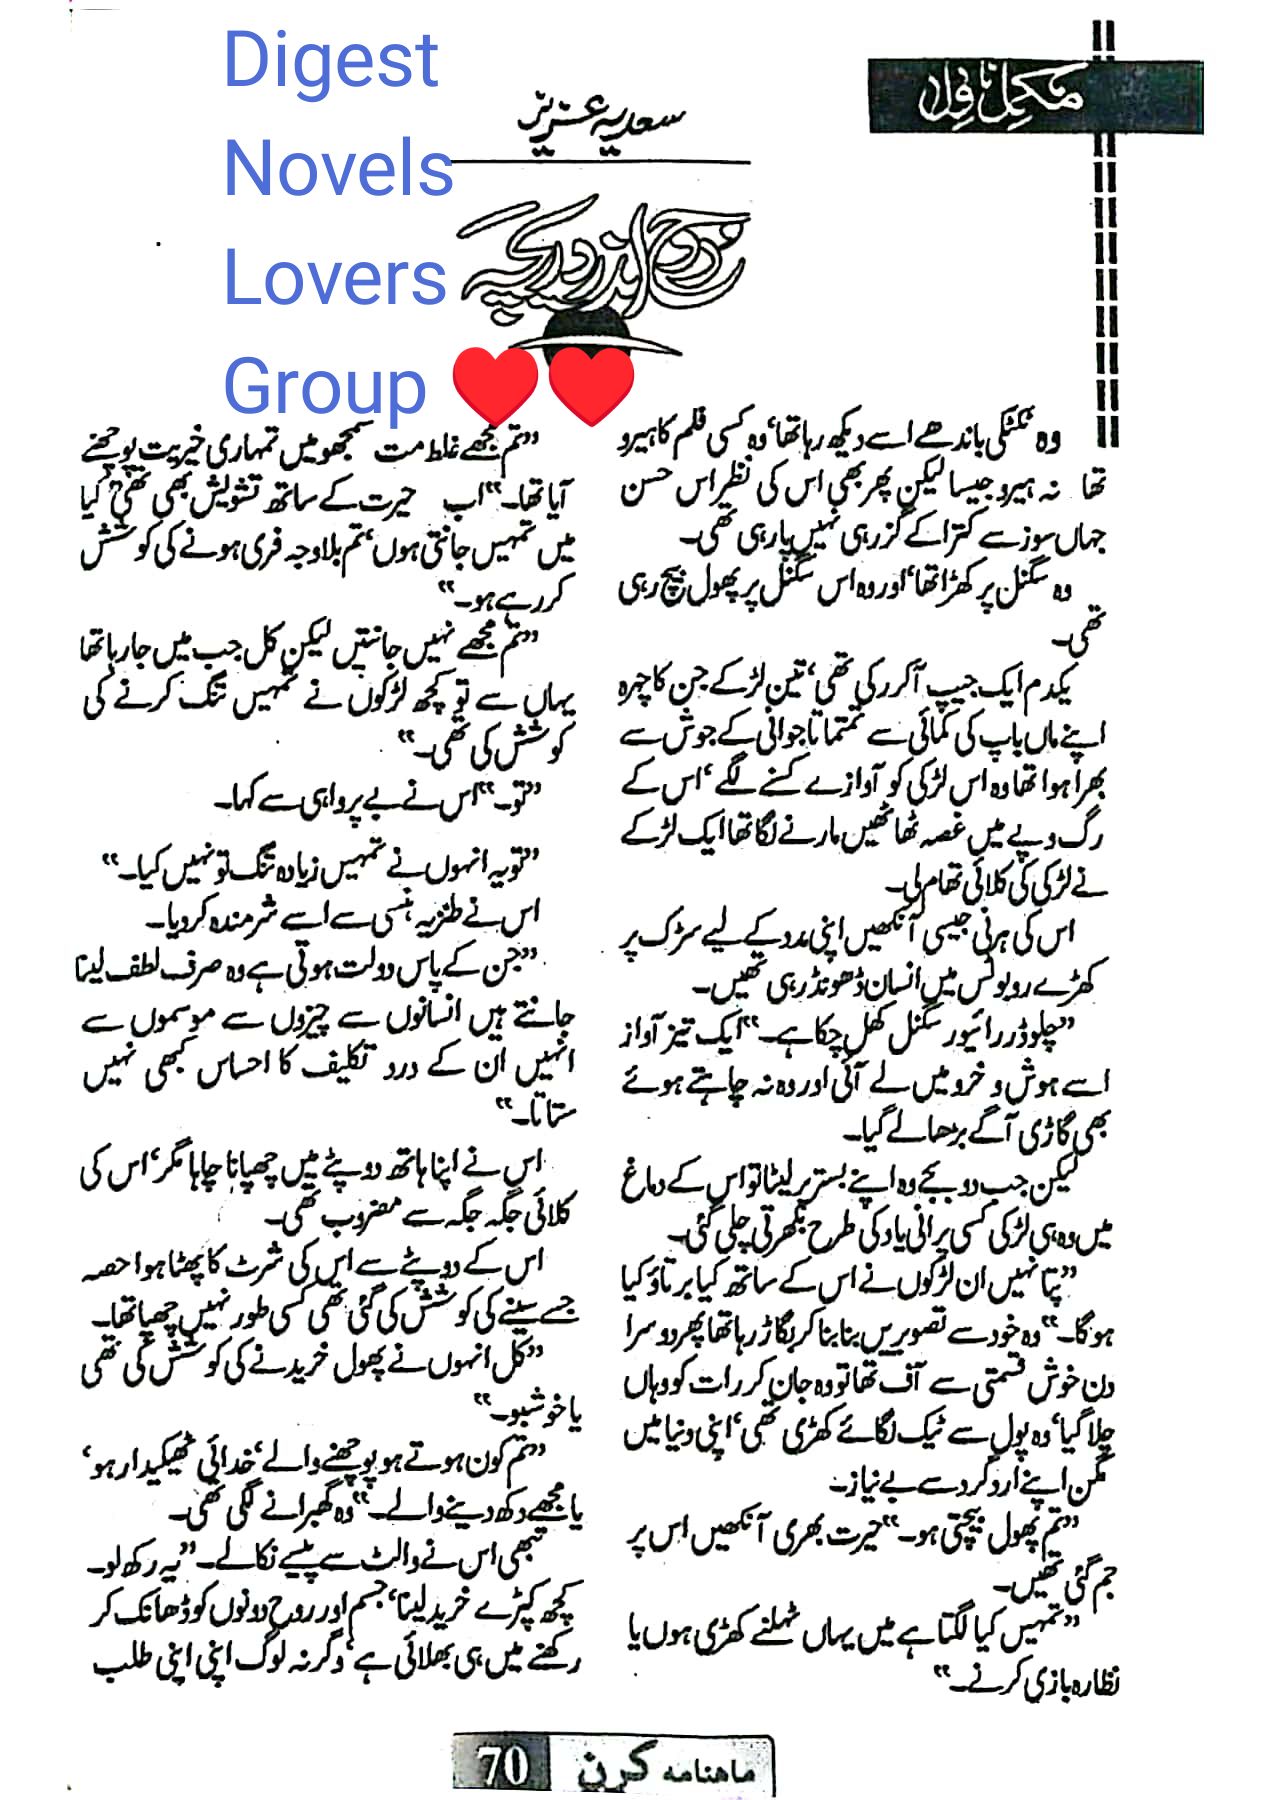 Digest
Novels
Lovers
Group ❤❤
مکمل ناول
سعدیہ عزیز
وہ ٹکٹکی باندھے اسے دیکھ رہا تھا، وہ کسی فلم کا ہیرو
تھا نہ ہیرو جیسا لیکن پھر بھی اس کی نظر اس حسن
جہاں سوز سے کترا کے گزر ہی نہیں پا رہی تھی۔
وہ سگنل پر کھڑا تھا، اور وہ اس سگنل پر پھول بیچ رہی
تھی۔
یکدم ایک جیپ آ کر رکی تھی، تین لڑکے جن کا چہرہ
اپنے ماں باپ کی کمائی سے تمتماتا جوانی کے جوش سے
بھرا ہوا تھا وہ اس لڑکی کو آوازے کسنے لگے، اس کے
رگ و پے میں غصہ ٹھاٹھیں مارنے لگا تھا ایک لڑکے
نے لڑکی کی کلائی تھام لی۔
اس کی ہرنی جیسی آنکھیں اپنی مدد کے لیے سڑک پر
کھڑے روبوٹس میں انسان ڈھونڈ رہی تھیں۔
”چلو ڈرائیور سگنل کھل چکا ہے۔“ ایک تیز آواز
اسے ہوش و خرد میں لے آئی اور وہ نہ چاہتے ہوئے
بھی گاڑی آگے بڑھا لے گیا۔
لیکن جب دو بجے وہ اپنے بستر پر لیٹا تو اس کے دماغ
میں وہ ہی لڑکی کسی پرانی یاد کی طرح بکھرتی چلی گئی۔
”پتا نہیں ان لڑکوں نے اس کے ساتھ کیا برتاؤ کیا
ہو گا۔“ وہ خود سے تصویریں بنا بنا کر بگاڑ رہا تھا پھر دوسرا
دن خوش قسمتی سے آف تھا تو وہ جان کر رات کو وہاں
چلا گیا، وہ پول سے ٹیک لگائے کھڑی تھی، اپنی دنیا میں
مگن اپنے ارد گرد سے بے نیاز۔
”تم پھول بیچتی ہو۔“ حیرت بھری آنکھیں اس پر
جم گئی تھیں۔
”تمہیں کیا لگتا ہے میں یہاں ٹہلنے کھڑی ہوں یا
نظارہ بازی کرنے۔“
”تم مجھے غلط مت سمجھو میں تمہاری خیریت پوچھنے
آیا تھا۔“ اب حیرت کے ساتھ تشویش بھی تھی ”کیا
میں تمہیں جانتی ہوں، تم بلاوجہ فری ہونے کی کوشش
کر رہے ہو۔“
”تم مجھے نہیں جانتیں لیکن کل جب میں جا رہا تھا
یہاں سے تو کچھ لڑکوں نے تمہیں تنگ کرنے کی
کوشش کی تھی۔“
”تو۔“ اس نے بے پرواہی سے کہا۔
”تو یہ انہوں نے تمہیں زیادہ تنگ تو نہیں کیا۔“
اس نے طنزیہ ہنسی سے اسے شرمندہ کر دیا۔
”جن کے پاس دولت ہوتی ہے وہ صرف لطف لینا
جانتے ہیں انسانوں سے چیزوں سے موسموں سے
انہیں ان کے درد تکلیف کا احساس کبھی نہیں
ستاتا۔“
اس نے اپنا ہاتھ دوپٹے میں چھپانا چاہا مگر، اس کی
کلائی جگہ جگہ سے مضروب تھی۔
اس کے دوپٹے سے اس کی شرٹ کا پھٹا ہوا حصہ
جسے سینے کی کوشش کی گئی تھی کسی طور نہیں چھپا تھا۔
”کل انہوں نے پھول خریدنے کی کوشش کی تھی
یا خوشبو۔“
”تم کون ہوتے ہو پوچھنے والے، خدائی ٹھیکیدار ہو،
یا مجھے دکھ دینے والے۔“ وہ گھبرانے لگی تھی۔
تبھی اس نے والٹ سے پیسے نکالے۔ ”یہ رکھ لو۔
کچھ کپڑے خرید لینا، جسم اور روح دونوں کو ڈھانک کر
رکھنے میں ہی بھلائی ہے، وگرنہ لوگ اپنی اپنی طلب
ماہنامہ کرن 70